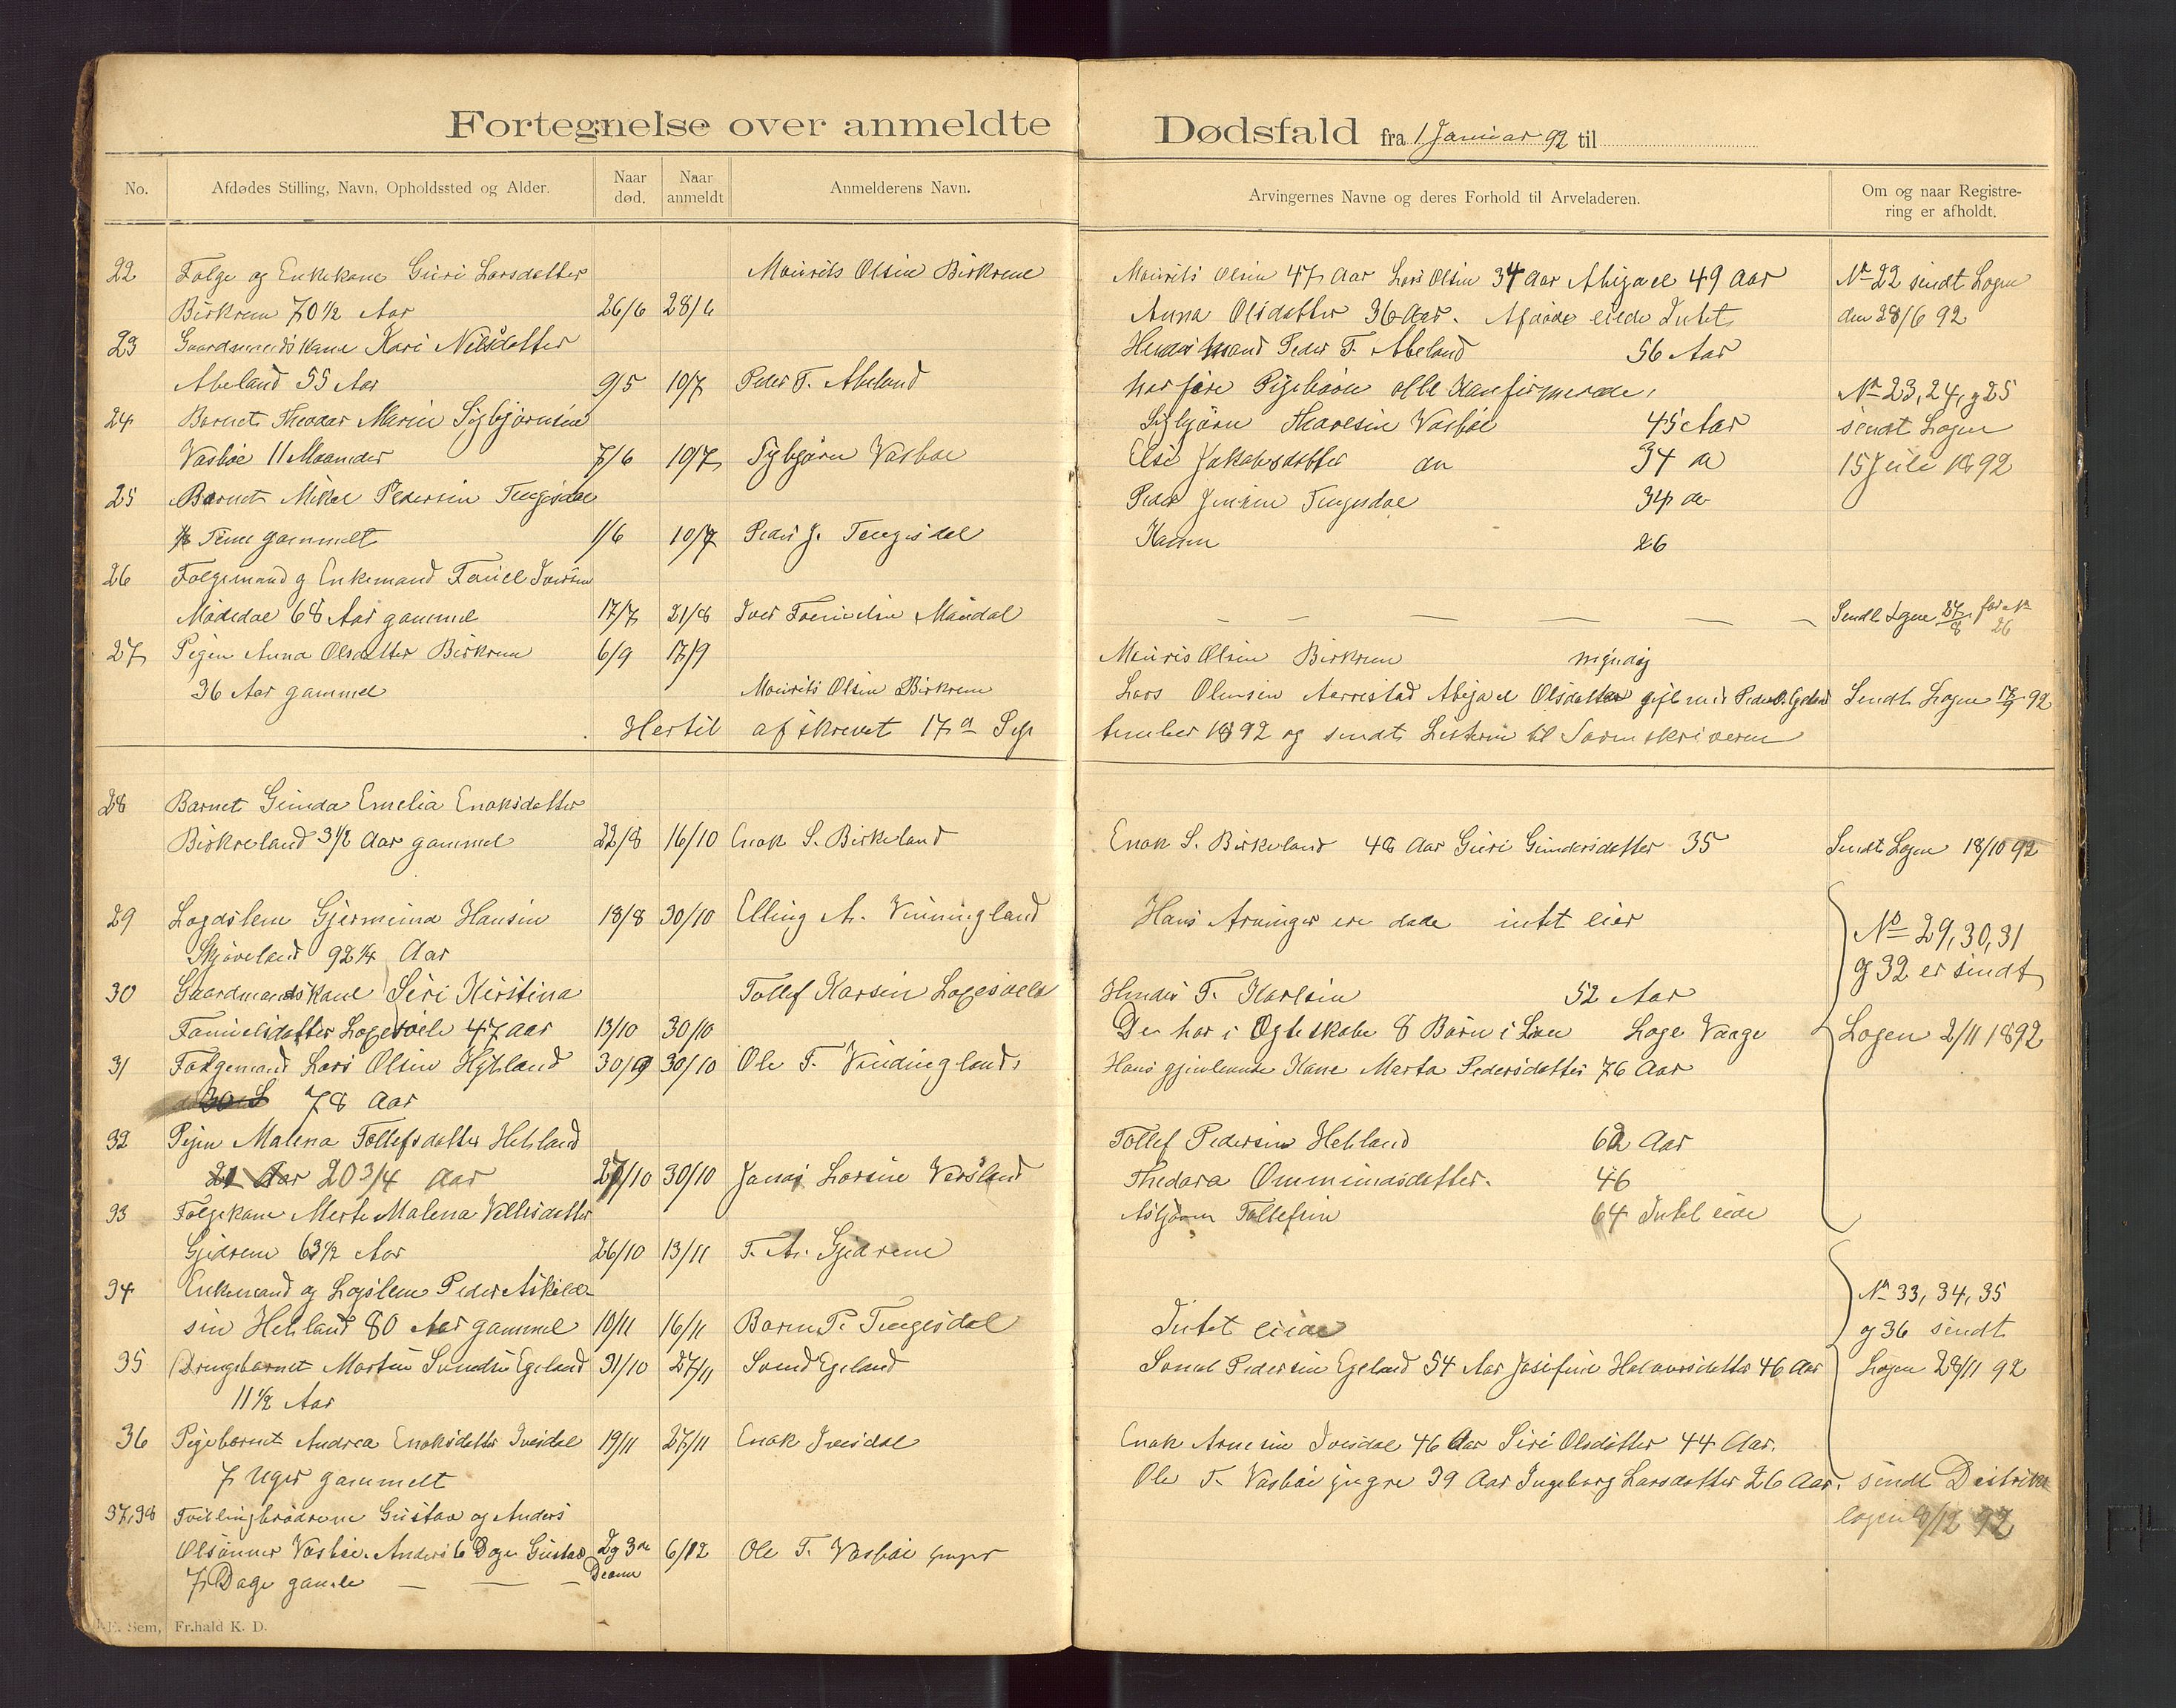 Fortegnelse over anmeldte Dødsfald fra 1 Januar 92 til
No. Afdødes Stilling, Navn, Opholdssted og Alder. Naar død. Naar anmeldt Anmelderens Navn.
Arvingernes Navne og deres Forhold til Arveladeren. Om og naar Registrering er afholdt.
22 Folge og Enkekone Guri Larsdatter Mourits Olsen Birkrem
Birkrem 70 1/2 Aar 26/6 28/6
23 Gaardmands Kane Kari Nilsdatter
Abeland 55 Aar 9/5 10/7 Peder T. Abeland
24 Barnet Theodor Marin Sigbjørnsen
Vasbøe 11 Maaneder 7/6 10/7 Sigbjørn Vasbøe
25 Barnet Mikal Pedersen Tengesdal
Time gammelt 1/6 10/7 Peder J. Tengesdal
26 Folgemand og Enkemand Tøniel Iversen
Mødedal 68 Aar gammel 17/7 21/8 Iver Tønielsen
27 Pigen Anna Olsdatter Birkrem 6/9 17/9
36 Aar gammel Mourits Olsen Birkrem
Hertil afskrevet 17de Sep
28 Barnet Gunda Emelia Enoksdatter
Birkreland 3 1/2 Aar gammel 22/8 16/10 Enok S. Birkeland
29 Lægdslem Gjermund Hansen 18/8 30/10 Elling A. Vinningland
Skjæveland 92 1/4 Aar
30 Gaardmandskane Siri Kirstina Tollef Karsen
Tønielsdatter 47 aar 13/10 30/10
31 Folgemand Lars Olsen Hytland 30/9 30/10 Ole T. Vindingland
78 Aar
32 Pigen Malena Tollefsdatter Hetland
21 Aar 20 3/4 Aar 27/10 30/10 Jonas Larsen Versland
33 Folgekane Merte Malena
Gjedrem 63 1/2 Aar 26/10 13/11 T. A. Gjedrem
34 Enkemand og Lægslem Peder Askild-
sen Hetland 80 Aar gammel 10/11 16/11 P. Tengesdal
35 Drengebarnet Martin Svendsen Egeland 31/10 27/11 Svend Egeland
11 1/2 Aar
36 Pigebarnet Andrea Enoksdatter Ivesdal 19/11 27/11 Enok Ivesdal
7 Uger gammelt
37,38 Tvillingbrødrene Gustav og Anders
Olsønner Vasbøe. Anders 6 Dage Gustav 2 og 3de 6/12 Ole T. Vasbøe yngre
7 Dage gamle
E. Sem, Fr.hald K. D.
Mourits Olsen 47 Aar Lars Olsen 34 Aar Abigael 49 Aar No 22 sendt Logen
Anna Olsdatter 36 Aar. Afdøde eiede Intet den 28/6 92
Hendes Mand Peder T. Abeland 56 Aar
har fire Pigebørn alle Konfirmerede, No 23, 24, og 25
Sigbjørn Vasbøe 45 Aar sendt Logen
Else Jakobsdatter do 34 do 15 Juli 1892
Peder Jensen Tengesdal 34 do
Karen 26
Sendt Logen 27/8 for No 26
Mouris Olsen Birkrem myndig
Lars Olausen Aarrestad Abigael Olsdatter gift med Peder Egeland Sendt Logen 17/9 92
tember 1892 og sendt Listerne til Sorenskriveren
Enok S. Birkeland 48 Aar Guri Gundersdatter 35 Sendt Logen 18/10 92
Hans Arvinger ere døde intet eier No 29, 30, 31
og 32 er sendt
Hendes T. Karlsen 52 Aar
De har i Ægteskabe 8 Børn i Live Logen 2/11 1892
Hans gjenlevende Kane Marta Pedersdatter 76 Aar
Tollef Pedersen Hetland 62 Aar
Thedora Ommundsdatter. 46
Tollefsen 64 Intet eide
No 33, 34, 35
Intet eide og 36 sendt
Svend Pedersen Egeland 54 Aar Josefine Halvorsdatter 46 Aar Logen 28/11 92
Enok Arnesen Ivesdal 46 Aar Siri Olsdatter 44 Aar.
Ole T. Vasbøe yngre 39 Aar Ingeborg Larsdatter 26 Aar. sendt Distrikts
logen 8/12 92